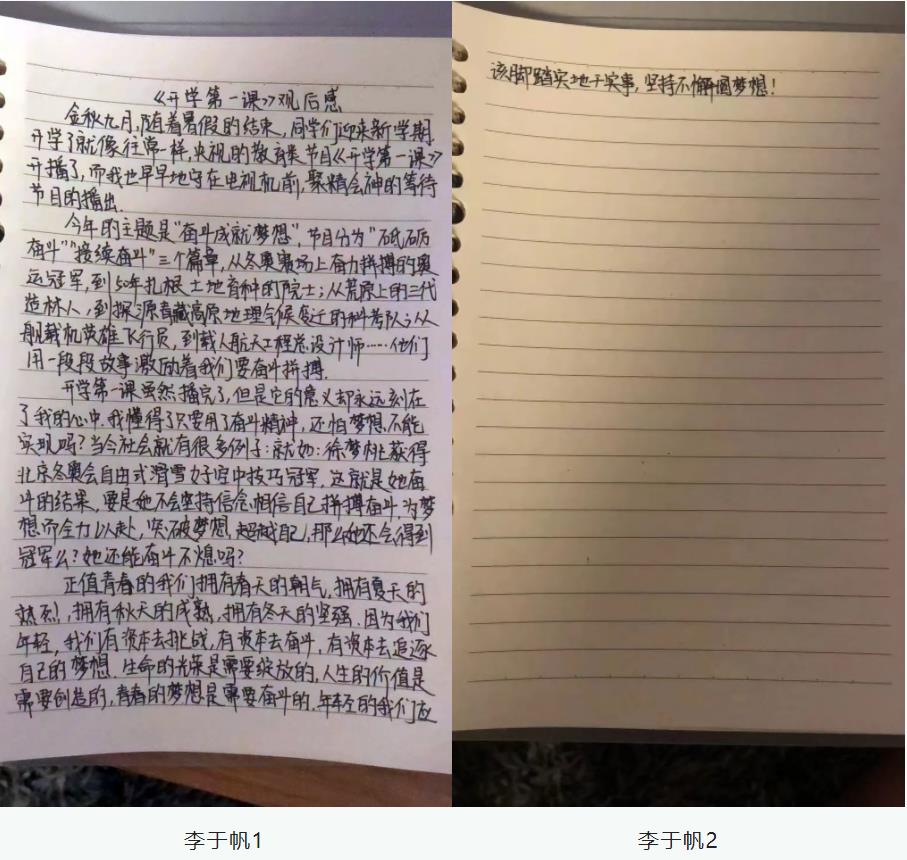 《开学第一课》观后感
金秋九月,随着暑假的结束,同学们迎来新学期.
开学了就像往常一样,央视的教育类节目《开学第一课》
开播了,而我也早早地守在电视机前,聚精会神的等待
节目的播出.
今年的主题是"奋斗成就梦想",节目分为"砥砺
奋斗""接续奋斗"三个篇章,从冬奥赛场上奋力拼搏的奥
运冠军,到50年扎根土地育种的院士;从荒原上的三代
造林人,到探源青藏高原地理气候变迁的科考队;从
舰载机英雄飞行员,到载人航天工程总设计师……他们
用一段段故事激励着我们要奋斗拼搏.
开学第一课虽然播完了,但是它的意义却永远刻在
了我的心中.我懂得了只要用了奋斗精神,还怕梦想不能
实现吗?当今社会就有很多例子:就如:徐梦桃获得
北京冬奥会自由式滑雪女子空中技巧冠军,这就是她奋
斗的结果,要是她不会坚持信念,相信自己拼搏奋斗,为梦
想而全力以赴,突破梦想,超越自己,那么她还会得到
冠军么?她还能奋斗不熄吗?
正值青春的我们拥有春天的朝气,拥有夏天的
热烈,拥有秋天的成熟,拥有冬天的坚强.因为我们
年轻,我们有资本去挑战,有资本去奋斗,有资本去追逐
自己的梦想.生命的光荣是需要绽放的,人生的价值是
需要创造的,青春的梦想是需要奋斗的.年轻的我们应
该脚踏实地干实事,坚持不懈圆梦想!
李于帆1
李于帆2